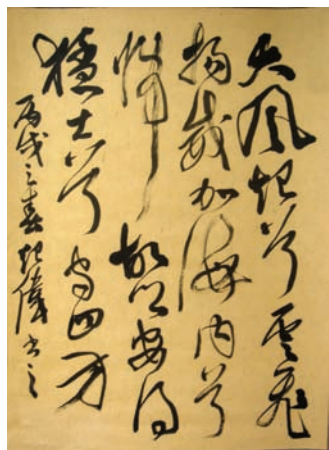 大風起兮雲飛
揚威加海内兮
歸故鄉安得
猛士兮守四方
丙戌之春起偉書之